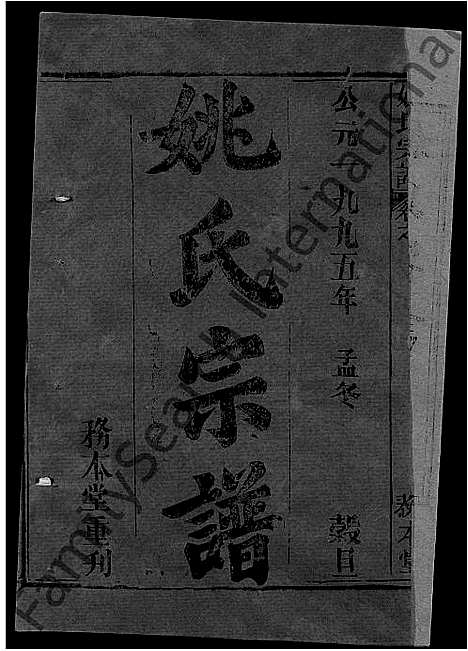 姚氏宗譜卷之
務本堂
公元一九九五年 孟冬 穀旦
姚氏宗譜
務本堂重刊
FamilySearch International